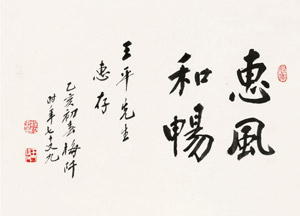 惠風
和暢
王平先生
惠存
乙亥初春梅阡
时年七十又九